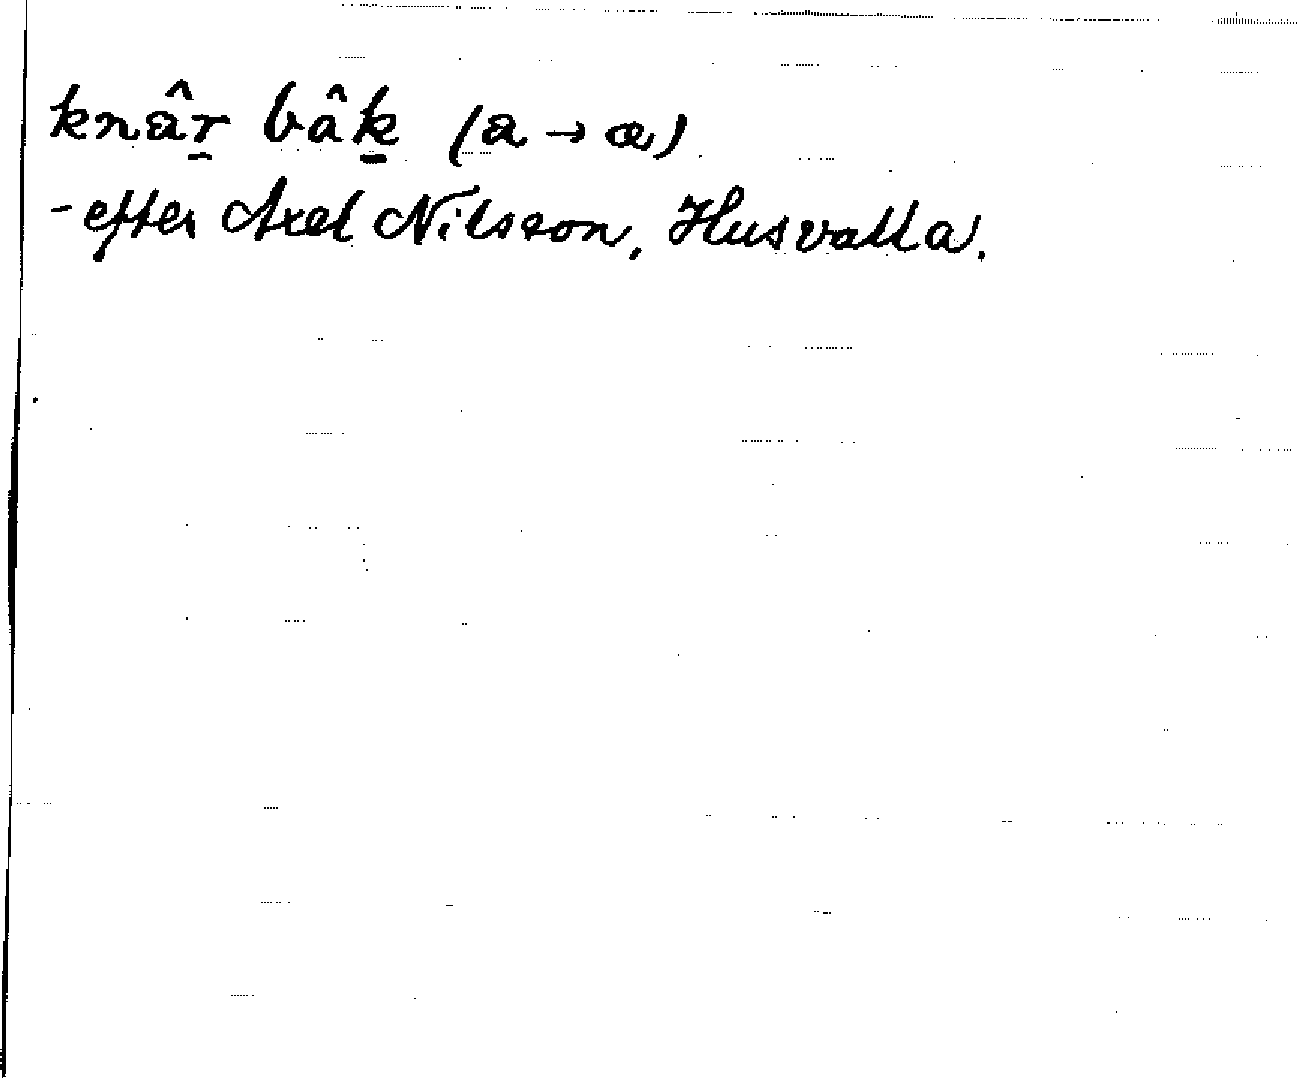 knâr̲ bâk̲ (a → æ)
- efter Axel Nilsson, Husvalla.